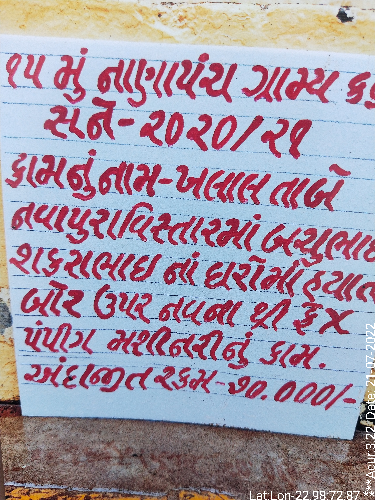 ૧૫ મું નાણાપંચ ગ્રામ્ય કક્
સને-૨૦૨૦/૨૧
કામનું નામ-ખલાલ તાબે
નવાપુરા વિસ્તારમાં બચુભાઇ
શકરાભાઇ નાં ઘરોમાં હયાત
બોર ઉપર નવના થ્રી ફેxX
પંપીગ મશીનરીનું કામ.
અંદાજીત રકમ-૭૦.૦૦૦/-
Lat:Lon-22.98:72.87
***Acur:3.22, Date: 21-07-2022